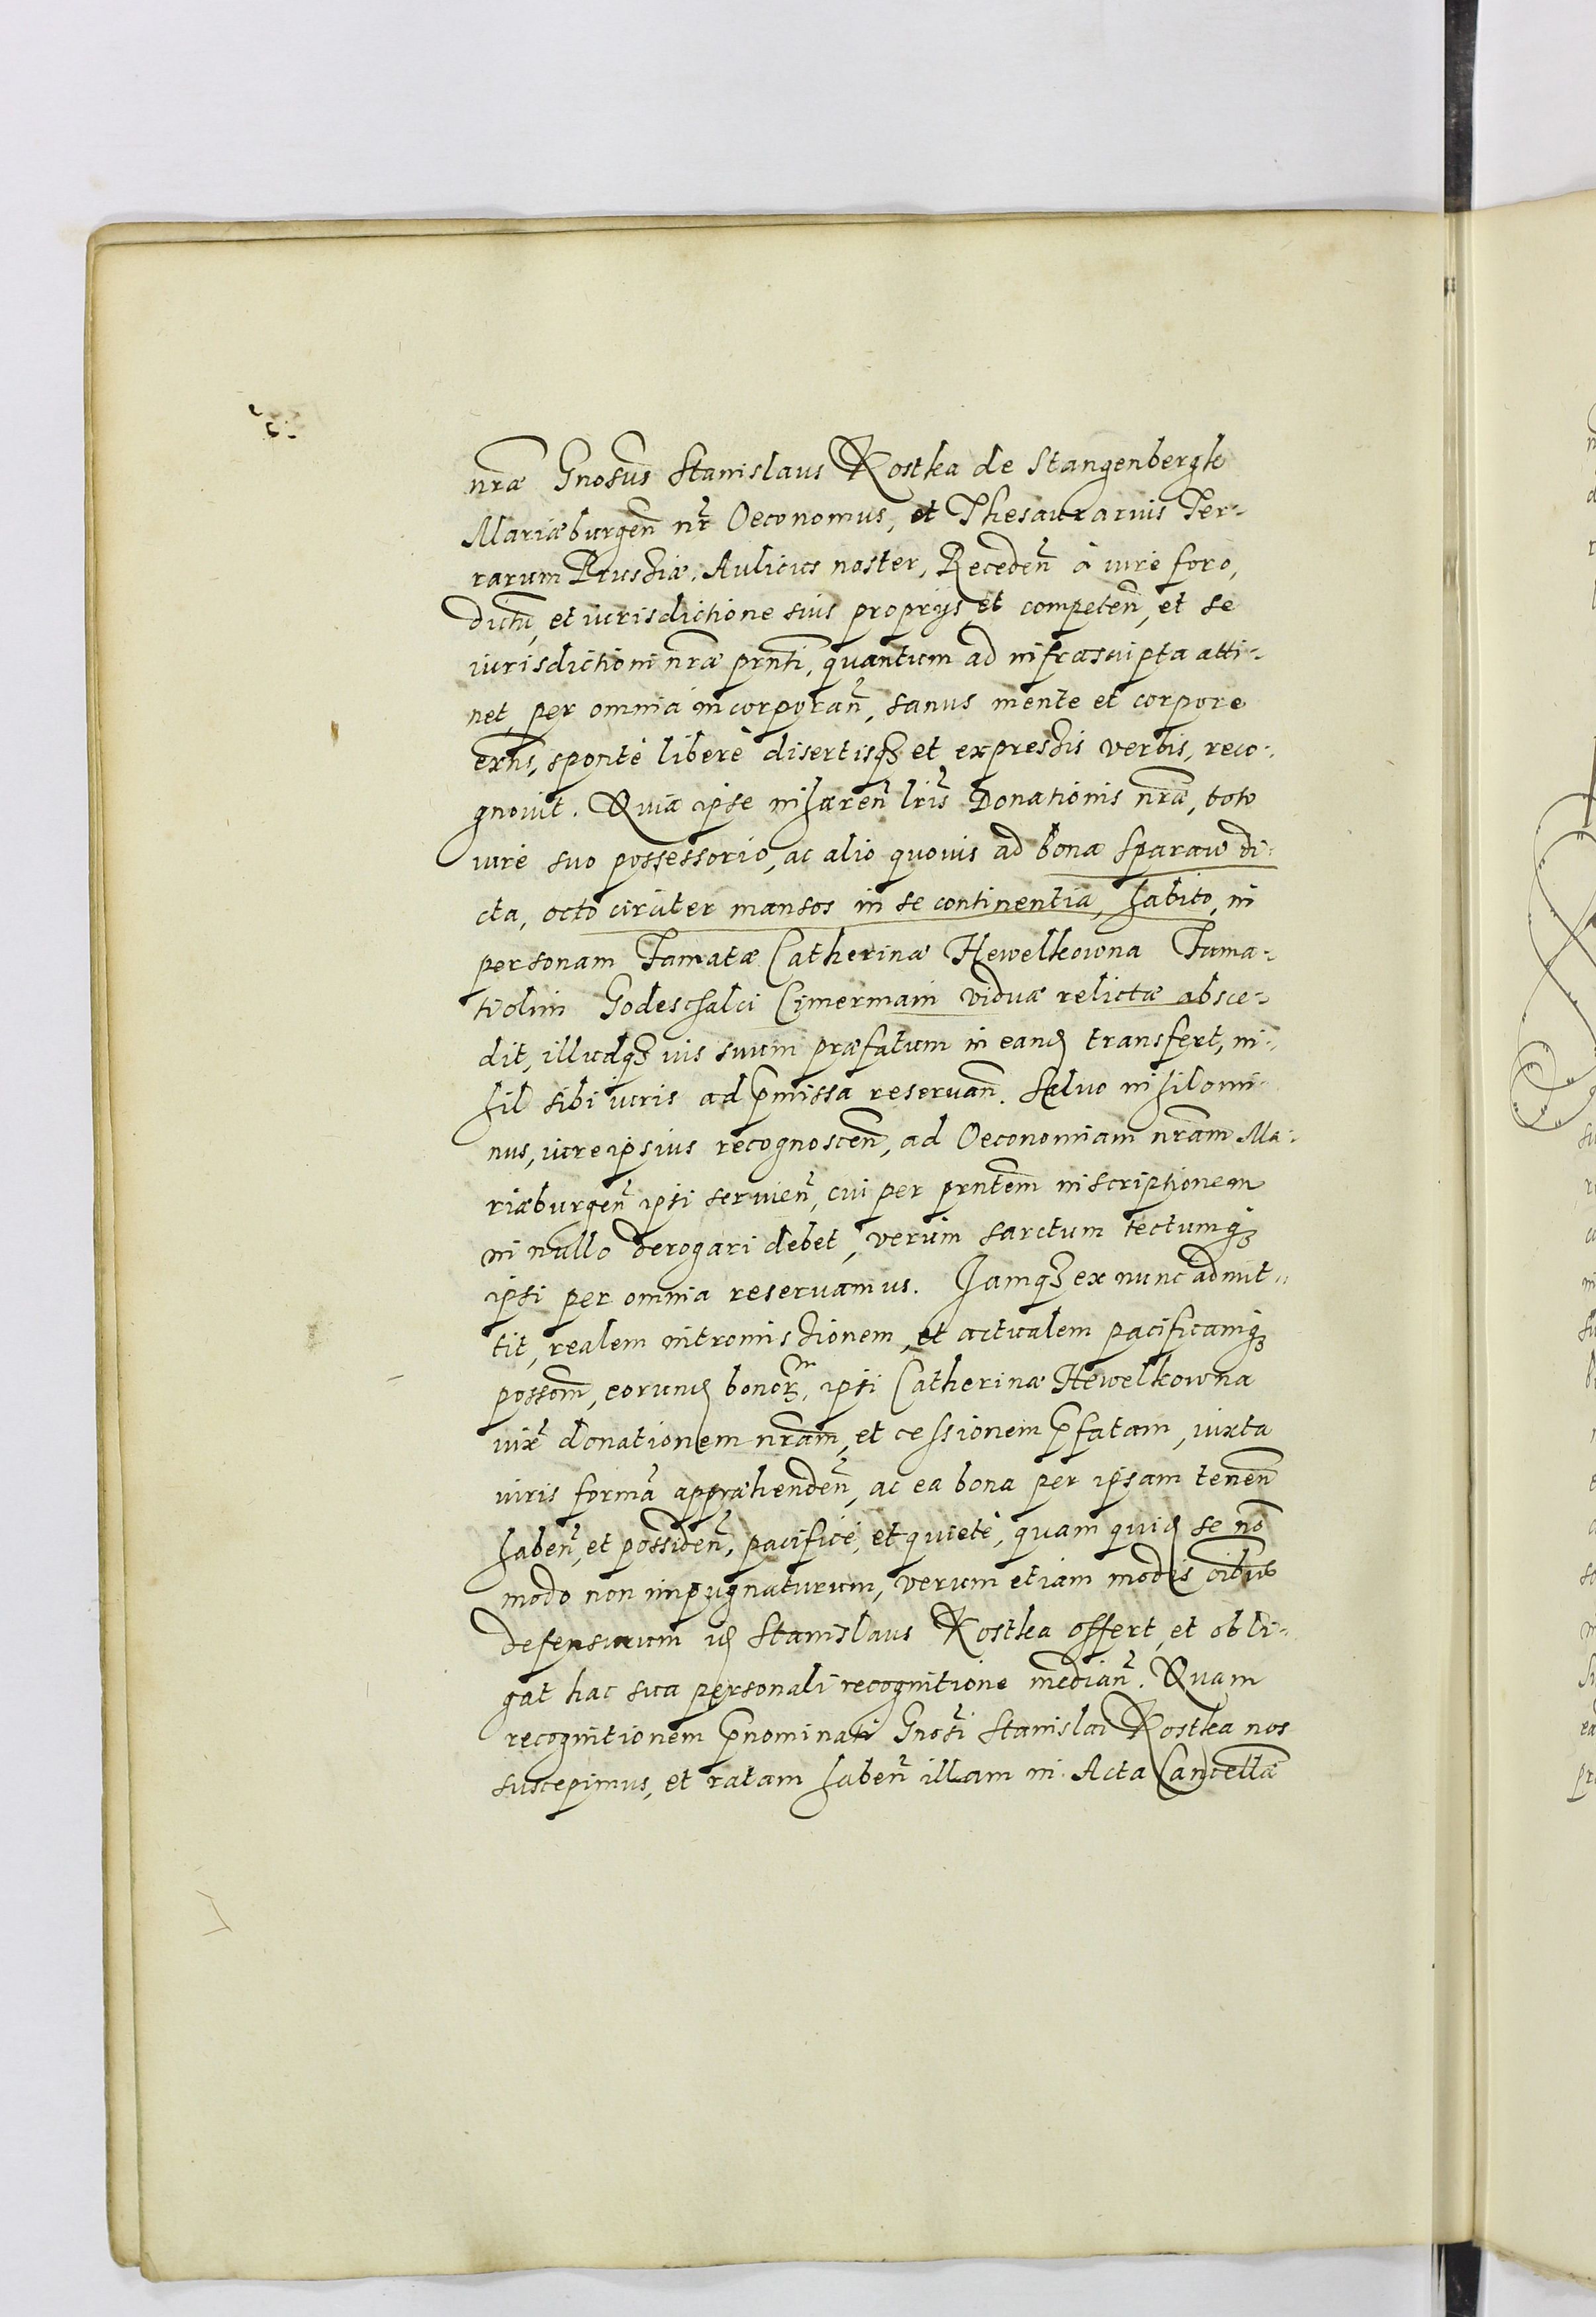 nr̃æ Gnosus̃ Stanislaus Kostka de Stangenbergk
Mariæburgen̄ nr̃ Oeconomus, et Thesaurarius Ter-
rarum Prussiæ, Aulicus noster, Receden̄ à iure foro,
dictũ, et iurisdictione suis proprijs et competen̄, et se
iurisdictioni nr̃æ prñti, quantum ad infrascripta atti-
net, per omnia incorporan̄, sanus mente et corpore
exñs, sponte libere disertisq3 et expressis verbis, reco-
gnouit. Quia ipse inhæren̄ lrĩs Donationis nr̃æ, toto
iure suo possessorio, ac alio quouis ad bona Sparaw di-
cta, octo circiter mansos in se continentia, habito, in
personam Famatæ Catherinæ Hewelkowna Fama-
ti olim Godeschalci Cimermain viduæ relictæ absce-
dit, illudq3 ius suum præfatum in eand transfert, ni-
hil sibi iuris ad p̃missa reseruan̄. Saluo nihilomi-
nus, iure ipsius recognoscen̄, ad Oeconomiam nr̃am Ma-
riæburgen̄ ipsi seruien̄, cui per prñtem inscriptionem
in nullo derogari debet, verùm sarctum tectumq3
ipsi per omnia reseruamus. Iamq3 ex nunc admit-
tit, realem intromissionem, et actualem pacificamq3
possom̃, eorund bonor̃m, ipsi Catherinæ Hewelkowna
iuxt̃ donationem nr̃am, et cessionem p̃fatam, iuxta
iuris formã appræhenden̄, ac ea bona per ipsam tenen̄
haben̄, et possiden̄, pacificè, et quietè, quam quid se nõ
modo non impugnaturum, verum etiam modis oĩbus
defensurum id Stanislaus Kostka offert, et obli-
gat hac sua personali recognitione median̄. Quam
recognitionem p̃nominati Gnosĩ Stanislai Kostka nos
suscepimus, et ratam haben̄ illam in Acta Cancellæ